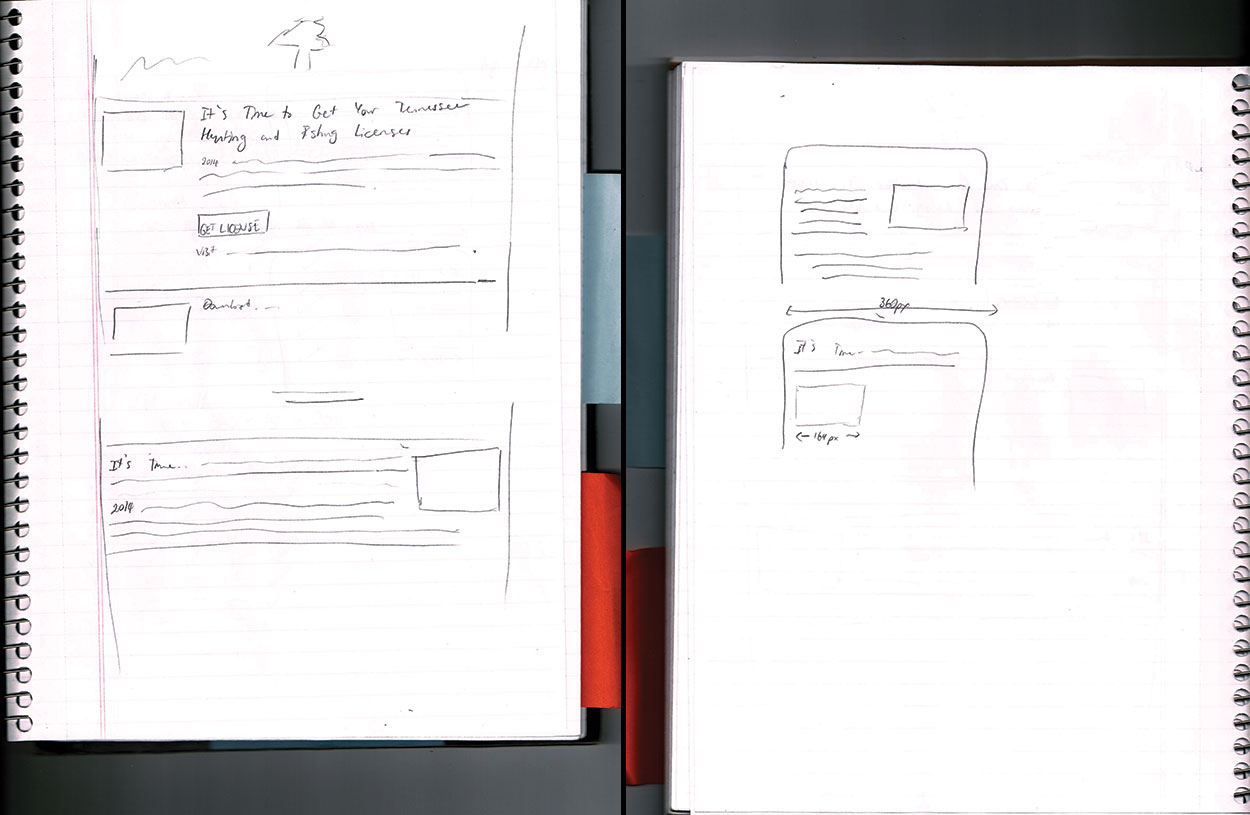 It's Time to Get Your Tennessee
Hunting and Fishing Licenses
2014
GET LICENSE
Visit
Download...
It's Time...
2014
360px
It's Time...
168px